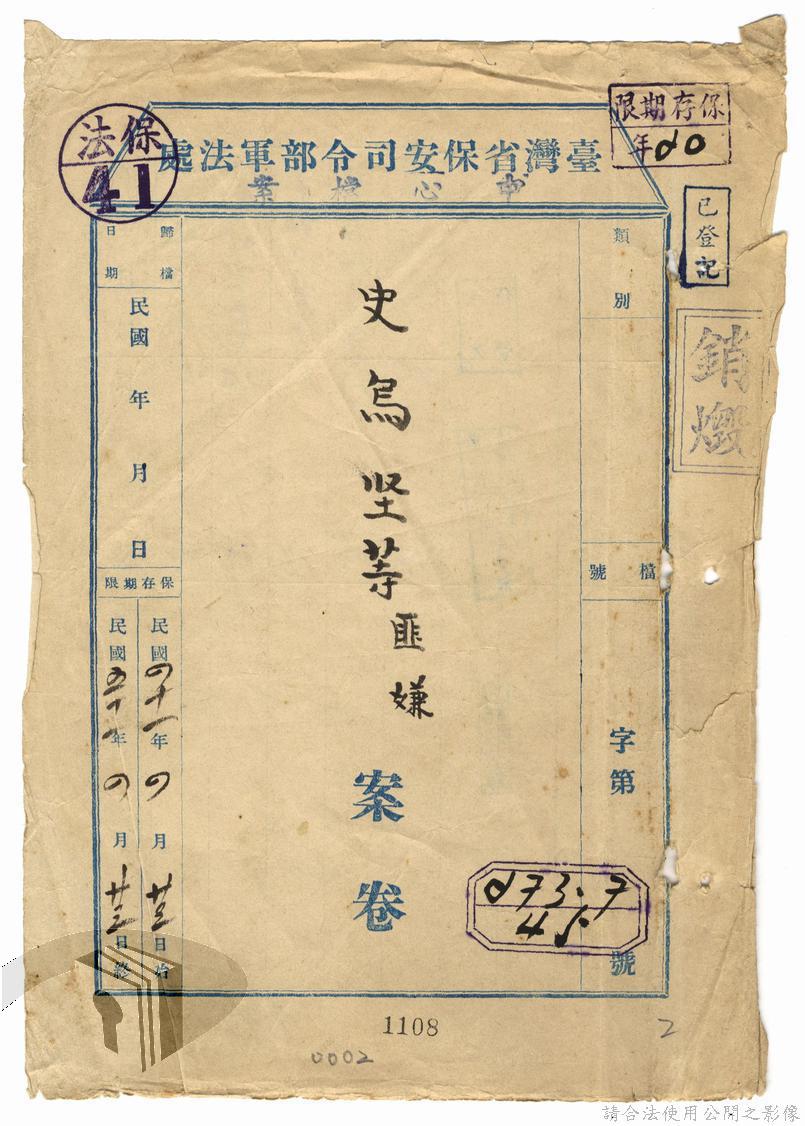 保存期限
年
保法
41
臺灣省保安司令部軍法處
檔案
已登記
銷燬
類別
檔號
字第
號
史烏坚等匪嫌
案卷
歸檔日期
民國 年 月 日
保存期限
民國四十一年四月廿三日始
民國五十一年四月廿三日終
273.7
45
1108
0002
2
請合法使用公開之影像